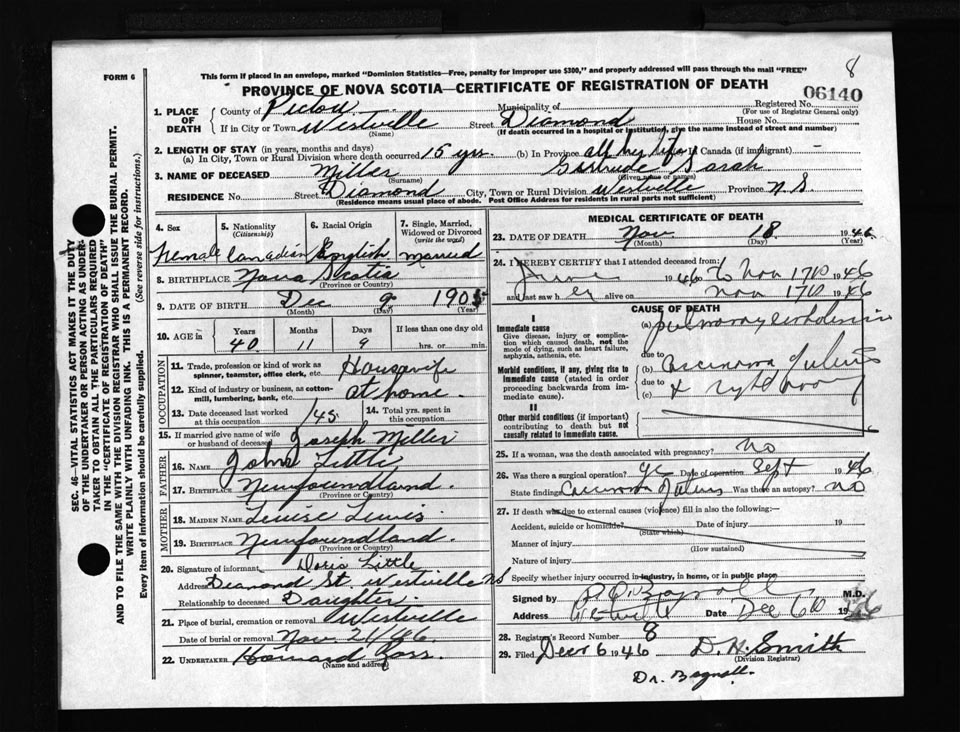 8
FORM 6
This form if placed in an envelope, marked "Dominion Statistics—Free, penalty for improper use $300," and properly addressed will pass through the mail "FREE"
PROVINCE OF NOVA SCOTIA—CERTIFICATE OF REGISTRATION OF DEATH
06140
1. PLACE OF DEATH County of Pictou Municipality of Registered No.
(For use of Registrar General only)
If in City or Town Westville Street Diamond House No.
(Name) (If death occurred in a hospital or institution, give the name instead of street and number)
2. LENGTH OF STAY (in years, months and days)
(a) In City, Town or Rural Division where death occurred 15 yrs. (b) In Province all her life in Canada (if immigrant)
3. NAME OF DECEASED Miller Gertrude Sarah
(Surname) (Given name or names)
RESIDENCE No. Street Diamond City, Town or Rural Division Westville Province N.S
(Residence means usual place of abode. Post Office Address for residents in rural parts not sufficient)
4. Sex Female
5. Nationality (Citizenship) Canadian
6. Racial Origin English
7. Single, Married, Widowed or Divorced (write the word) Married
8. BIRTHPLACE Nova Scotia
(Province or Country)
9. DATE OF BIRTH Dec 9 1905
(Month) (Day) (Year)
10. AGE in Years 40 Months 11 Days 9 If less than one day old hrs. or min.
OCCUPATION
11. Trade, profession or kind of work as spinner, teamster, office clerk, etc. Housewife
12. Kind of industry or business, as cotton-mill, lumbering, bank, etc. at home.
13. Date deceased last worked at this occupation /45
14. Total yrs. spent in this occupation
15. If married give name of wife or husband of deceased Joseph Miller
FATHER
16. NAME John Little
17. BIRTHPLACE Newfoundland.
(Province or Country)
MOTHER
18. MAIDEN NAME Louise Lewis
19. BIRTHPLACE Newfoundland.
(Province or Country)
20. Signature of informant Doris Little
Address Diamond St. Westville NS
Relationship to deceased Daughter
21. Place of burial, cremation or removal Westville
Date of burial or removal Nov. 21/46
22. UNDERTAKER Howard
(Name and address)
MEDICAL CERTIFICATE OF DEATH
23. DATE OF DEATH Nov 18 1946
(Month) (Day) (Year)
24. I HEREBY CERTIFY that I attended deceased from:
June 1946 to Nov 17th 1946
and last saw her alive on Nov 17th 1946
CAUSE OF DEATH
I
Immediate cause
Give disease, injury or complication which caused death, not the mode of dying, such as heart failure, asphyxia, asthenia, etc.
(a) pulmonary embolism
due to
Morbid conditions, if any, giving rise to immediate cause (stated in order proceeding backwards from immediate cause).
(b) Carcinoma of uterus
due to
(c) & right ovary
II
Other morbid conditions (if important) contributing to death but not causally related to immediate cause.
25. If a woman, was the death associated with pregnancy? no
26. Was there a surgical operation? yes Date of operation Sept 1946
State findings Carcinoma of uterus Was there an autopsy? no
27. If death was due to external causes (violence) fill in also the following:—
Accident, suicide or homicide? Date of injury 19
(State which)
Manner of injury
(How sustained)
Nature of injury
Specify whether injury occurred in industry, in home, or in public place
Signed by Bagnall M.D.
Address Westville Date Dec 6th 1946
28. Registrar's Record Number 8
29. Filed Decr 6 1946 D. H. Smith
(Division Registrar)
Dr. Bagnall.
SEC. 46—VITAL STATISTICS ACT MAKES IT THE DUTY
OF THE UNDERTAKER OR PERSON ACTING AS UNDER-
TAKER TO OBTAIN ALL THE PARTICULARS REQUIRED
IN THE "CERTIFICATE OF REGISTRATION OF DEATH"
AND TO FILE THE SAME WITH THE DIVISION REGISTRAR WHO SHALL ISSUE THE BURIAL PERMIT.
WRITE PLAINLY WITH UNFADING INK. THIS IS A PERMANENT RECORD.
Every item of information should be carefully supplied. (See reverse side for instructions.)